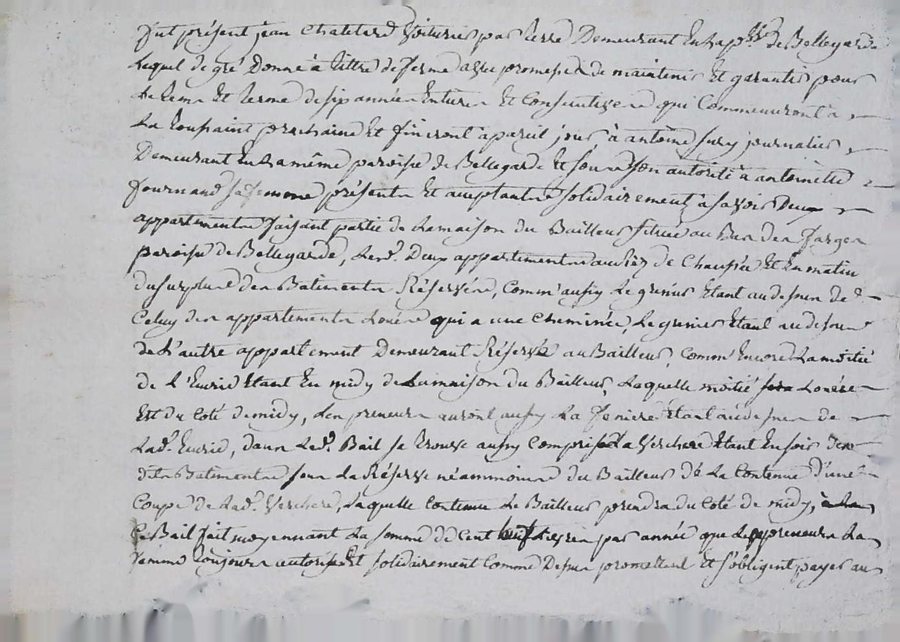 fut présent jean Chatelard Voiturier par terre Demeurant En la p.sse de Bellegarde
lequel de gré Donne à tittre de ferme avec promesse de maintenir Et garantir pour
le tems Et terme de six années Entieres Et Consecutives qui Commenceront à
La Toussaint prochaine Et finiront à pareil jour à antoine Sury journalier
Demeurant En la même paroisse de Bellegarde Et sous son autorité à antoinette
fournand sa femme présents Et acceptants solidairement à savoir Deux
appartements faisant partie de La maison du Bailleur située au Bur des farges
paroisse de Bellegarde, Lesd. Deux appartements au Réz de Chaussée Et En matin
du surplus des Batiments Réservés, Comm'aussy Le grenier Etant au dessus de
Celuy des appartements Loués qui a une Cheminée, Le grenier Etant au dessus
de L'autre appartement Demeurant Réservé au Bailleur, Comm'Encore La moitié
de L'Eurie Etant En midy de La maison du Bailleur, Laquelle moitié Louée
Est du Coté de midy, Les preneurs auront aussy La feniere Etant au dessus de
Lad. Eurie, dans Led. Bail se trouve aussy Comprise La Verchere Etant En soir des
dits Batiments sous La Réserve néammoins du Bailleur de La Contenue d'une
Coupe de Lad. Verchere, Laquelle Contenue Le Bailleur prendra du Coté de midy,
Ce Bail fait moyennant La somme de Cent huit Livres par année que Les preneurs La
femme toujours autorisée Et solidairement Comme Dessus promettent Et s'obligent payer au